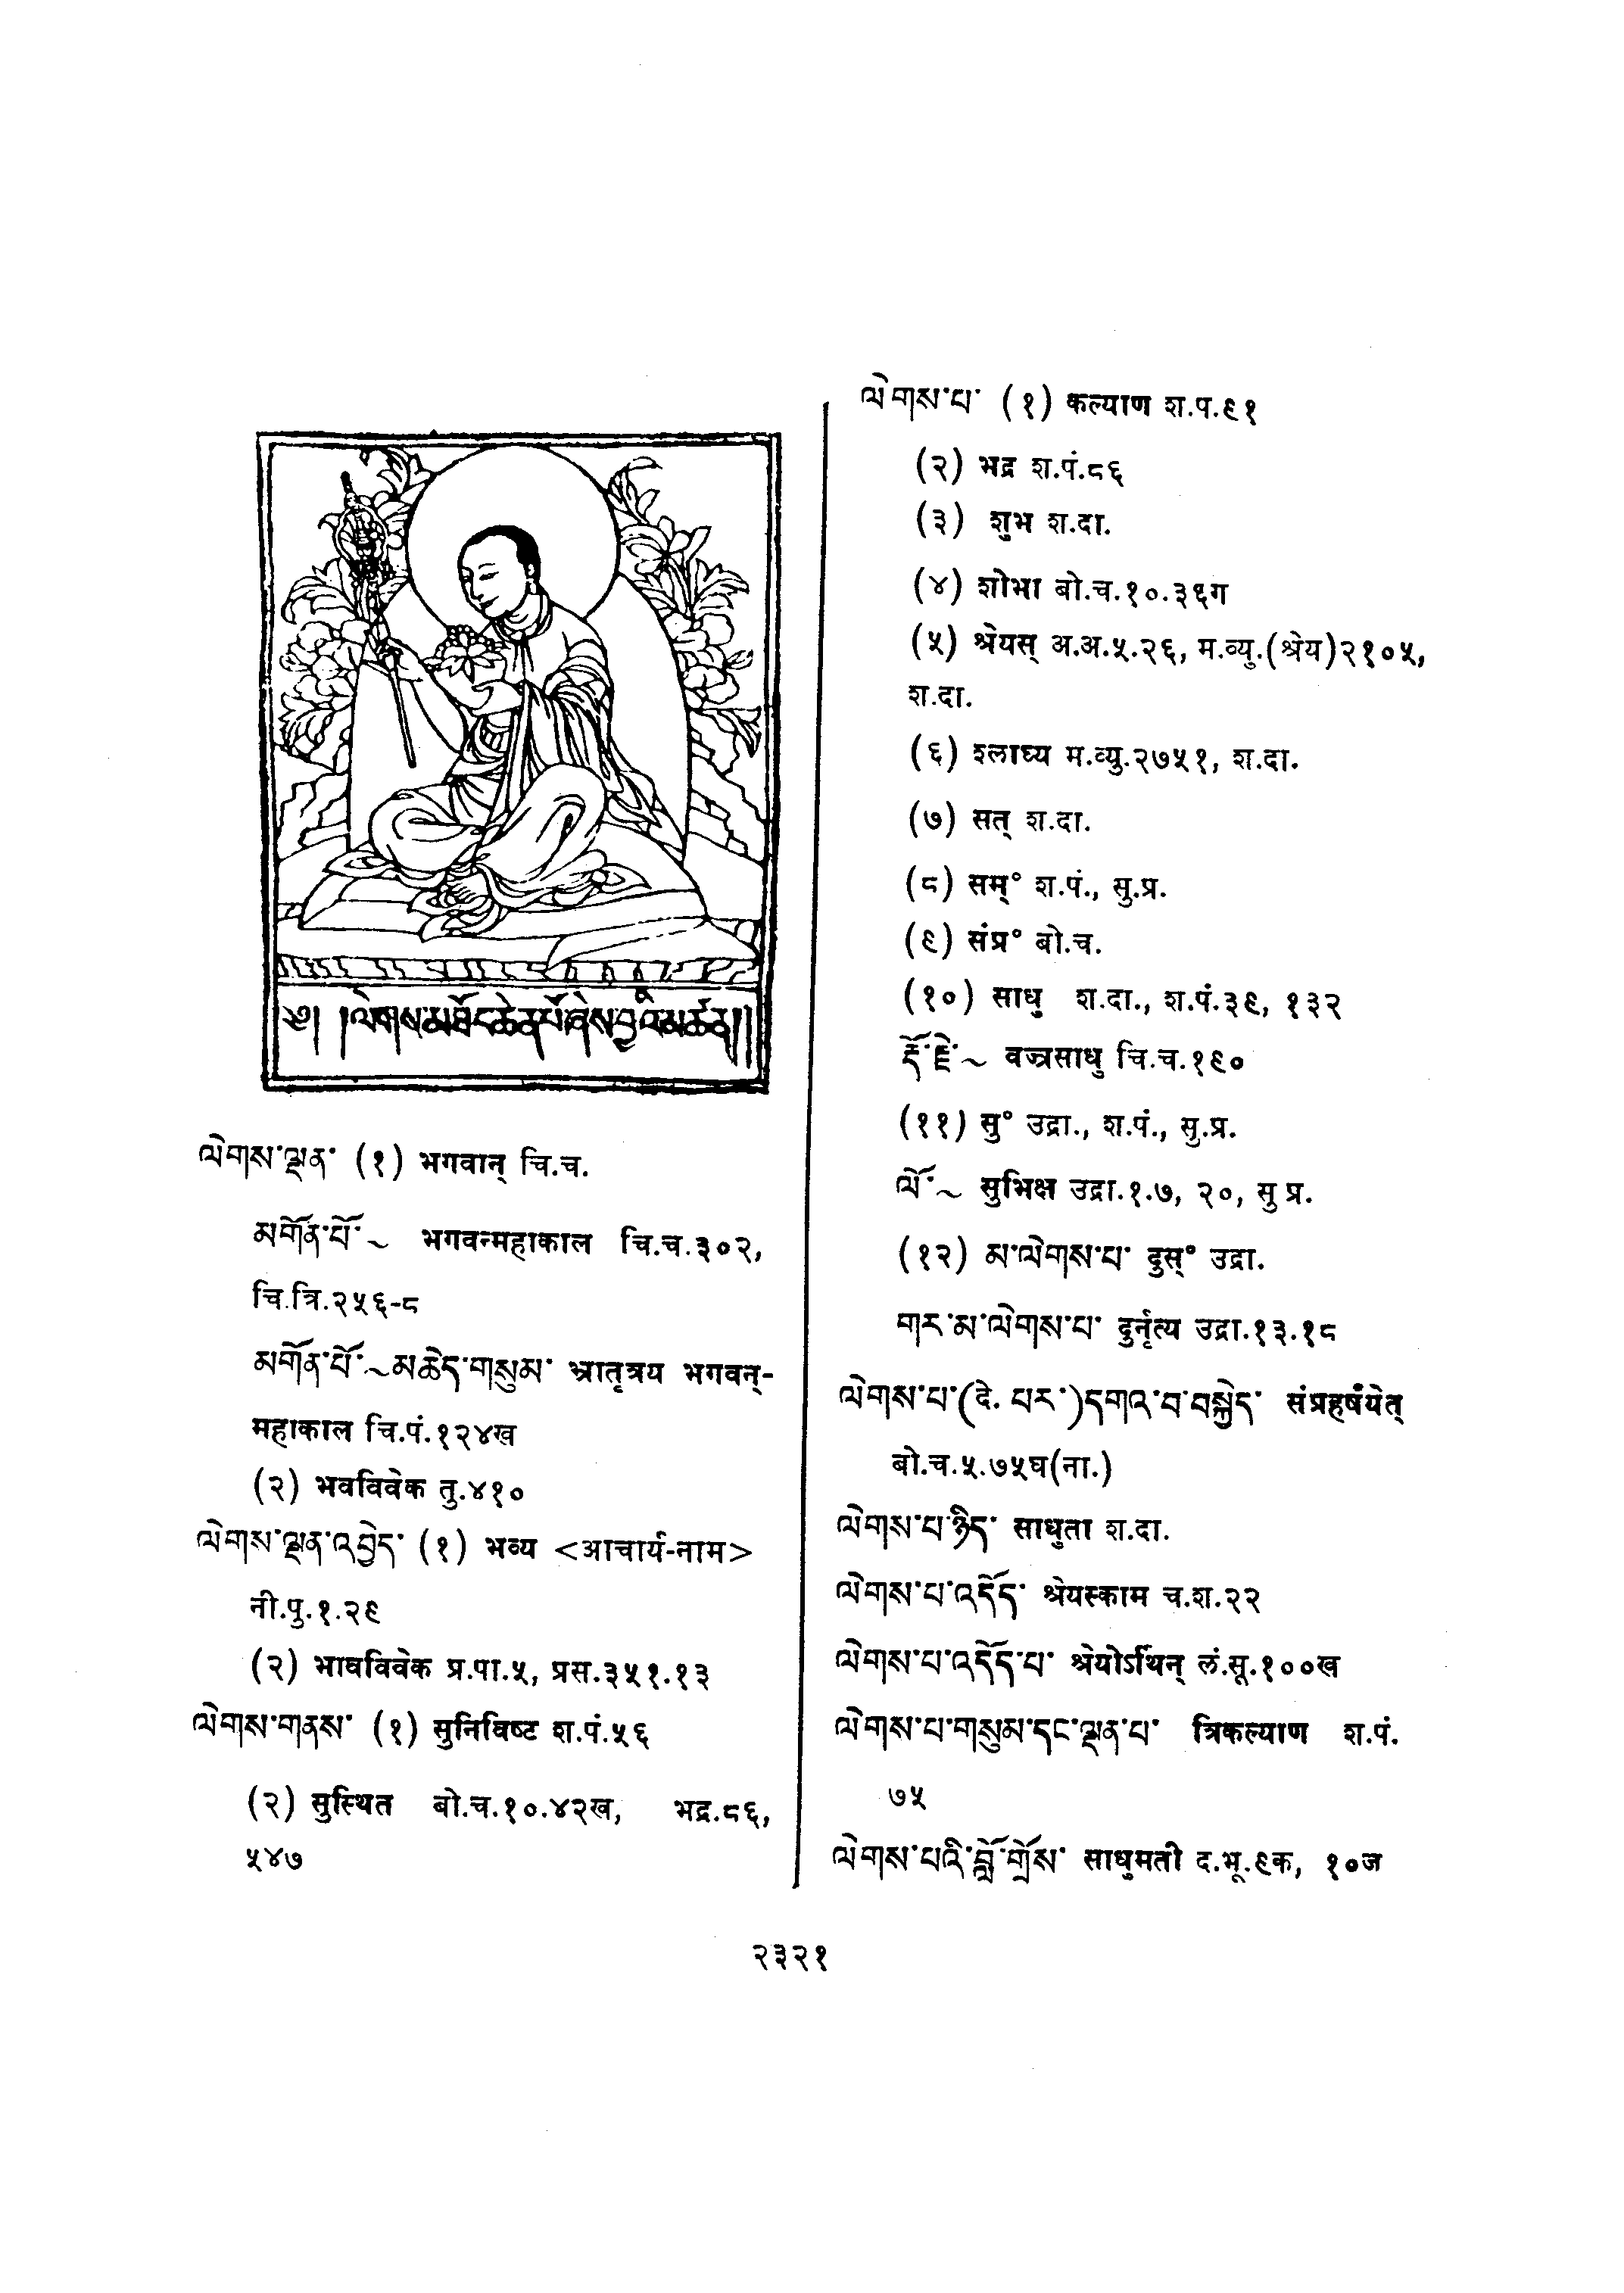 ༄། །ལེགས་མཐོང་ཆེན་པོ་ཞེས་བྱ་བའི་མཚན།།
ལེགས་ལྡན་ (१) भगवान् चि.च.
མགོན་པོ་~ भगवन्महाकाल चि.च.३०२,
चि.त्रि.२५६-८
མགོན་པོ་~མཆེད་གསུམ་ भ्रातृत्रय भगवन्-
महाकाल चि.पं.१२४ख
(२) भवविवेक तु.४१०
ལེགས་ལྡན་འབྱེད་ (१) भव्य <आचार्य-नाम>
नी.पु.१.२९
(२) भावविवेक प्र.पा.५, प्रस.३५१.१३
ལེགས་གནས་ (१) सुनिविष्ट श.पं.५६
(२) सुस्थित बो.च.१०.४२ख, भद्र.८६,
५४७
ལེགས་པ་ (१) कल्याण श.प.९१
(२) भद्र श.पं.८६
(३) शुभ श.दा.
(४) शोभा बो.च.१०.३६ग
(५) श्रेयस् अ.अ.५.२६, म.व्यु.(श्रेय)२१०५,
श.दा.
(६) श्लाघ्य म.व्यु.२७५१, श.दा.
(७) सत् श.दा.
(८) सम्° श.पं., सु.प्र.
(९) संप्र° बो.च.
(१०) साधु श.दा., श.पं.३९, १३२
རྡོ་རྗེ་~ वज्रसाधु चि.च.१९०
(११) सु° उद्रा., श.पं., सु.प्र.
ལོ་~ सुभिक्ष उद्रा.१.७, २०, सु प्र.
(१२) མ་ལེགས་པ་ दुस्° उद्रा.
གར་མ་ལེགས་པ་ दुर्नृत्य उद्रा.१३.१८
ལེགས་པ་(दे. པར་)དགའ་བ་བསྐྱེད་ संप्रहर्षयेत्
बो.च.५.७५घ(ना.)
ལེགས་པ་ཉིད་ साधुता श.दा.
ལེགས་པ་འདོད་ श्रेयस्काम च.श.२२
ལེགས་པ་འདོད་པ་ श्रेयोऽर्थिन् लं.सू.१००ख
ལེགས་པ་གསུམ་དང་ལྡན་པ་ त्रिकल्याण श.पं.
७५
ལེགས་པའི་བློ་གྲོས་ साधुमती द.भू.९क, १०ज
२३२१